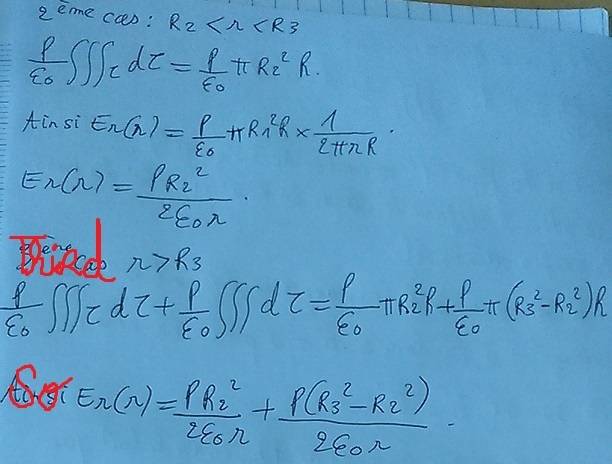 2ème cas: R₂ < r < R₃
ρ/ε₀ ∭τ dτ = ρ/ε₀ π R₂² h.
Ainsi Er(r) = ρ/ε₀ π R₁² h × 1/(2π r h).
Er(r) = ρR₂²/(2ε₀r).
Third cas r > R₃
ρ/ε₀ ∭τ dτ + ρ/ε₀ ∭ dτ = ρ/ε₀ π R₂² h + ρ/ε₀ π (R₃² - R₂²) h
So Er(r) = ρR₂²/(2ε₀r) + ρ(R₃² - R₂²)/(2ε₀r).